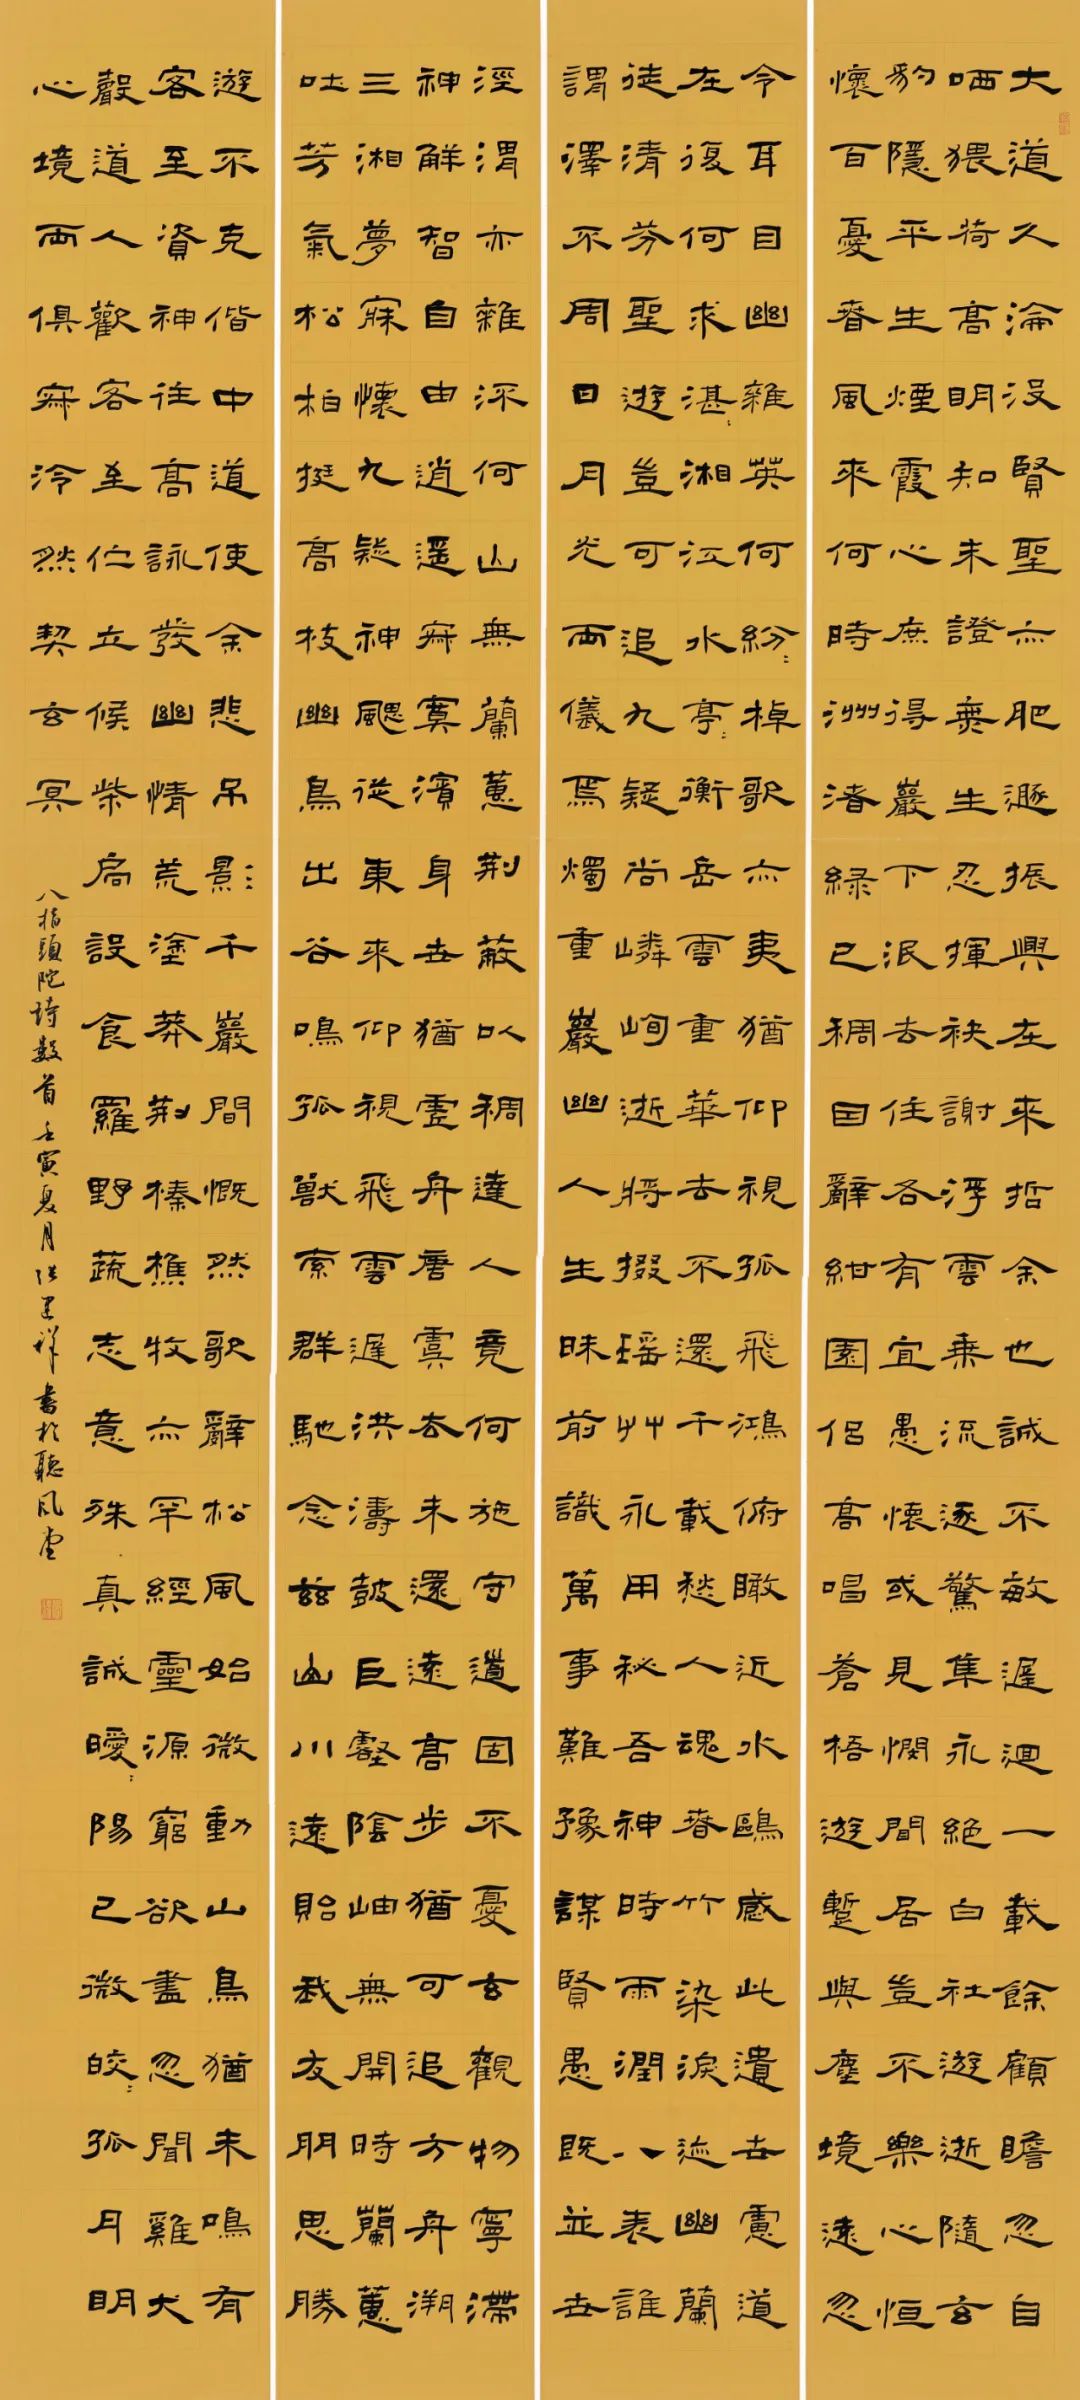 大道久淪没賢聖亦肥遯振興在來哲余也誠不敏遲迴一載餘顧瞻忽自
哂猥荷高明知未證無生忍揮袂謝浮雲乘流逐驚隼永絕白社遊逝隨玄
豹隱平生煙霞心庶得巖下泯去住各有宜愚懷或見憫閒居豈不樂心恒
懷百憂春風來何時洲渚綠已稠自辭紺園侶高唱蒼梧遊蹔與塵境遠忽
令耳目幽雜英何紛〻棹歌亦夷猶仰視孤飛鴻俯瞰近水鷗感此遺世慮道
在復何求湛〻湘江水亭〻衡岳雲重華去不還千載愁人魂春竹染淚迹幽蘭
徒清芬聖遊豈可追九疑尚嶙峋逝將掇瑤艸永用秘吾神時雨潤八表誰
謂澤不周日月光兩儀焉燭重巖幽人生昧前識萬事難豫謀賢愚既並世
涇渭亦雜流何山無蘭蕙荆蔽以稠達人竟何施守道固不憂玄觀物寧滯
神解智自由逍遥寂寞濱身世猶虛舟唐虞去未還遠高步猶可追方舟溯
三湘夢寐懷九疑神颸從東來仰視飛雲遲洪濤皷巨壑陰岫無開時蘭蕙
吐芳氣松柏挺高枝幽鳥出谷鳴孤獸索群馳念兹山川遠貽我友朋思勝
遊不克偕中道使余悲吊影〻千巖間慨然歌辭松風始微動山鳥猶未鳴有
客至資神往高詠發幽情荒塗莽荆榛樵牧亦罕經靈源窮欲盡忽聞雞犬
聲道人歡客至伫立候柴扃設食羅野蔬志意殊真誠曖〻陽已微皎〻孤月明
心境兩俱寂泠然契玄冥
八指頭陀詩數首壬寅夏月祥書於聽風堂